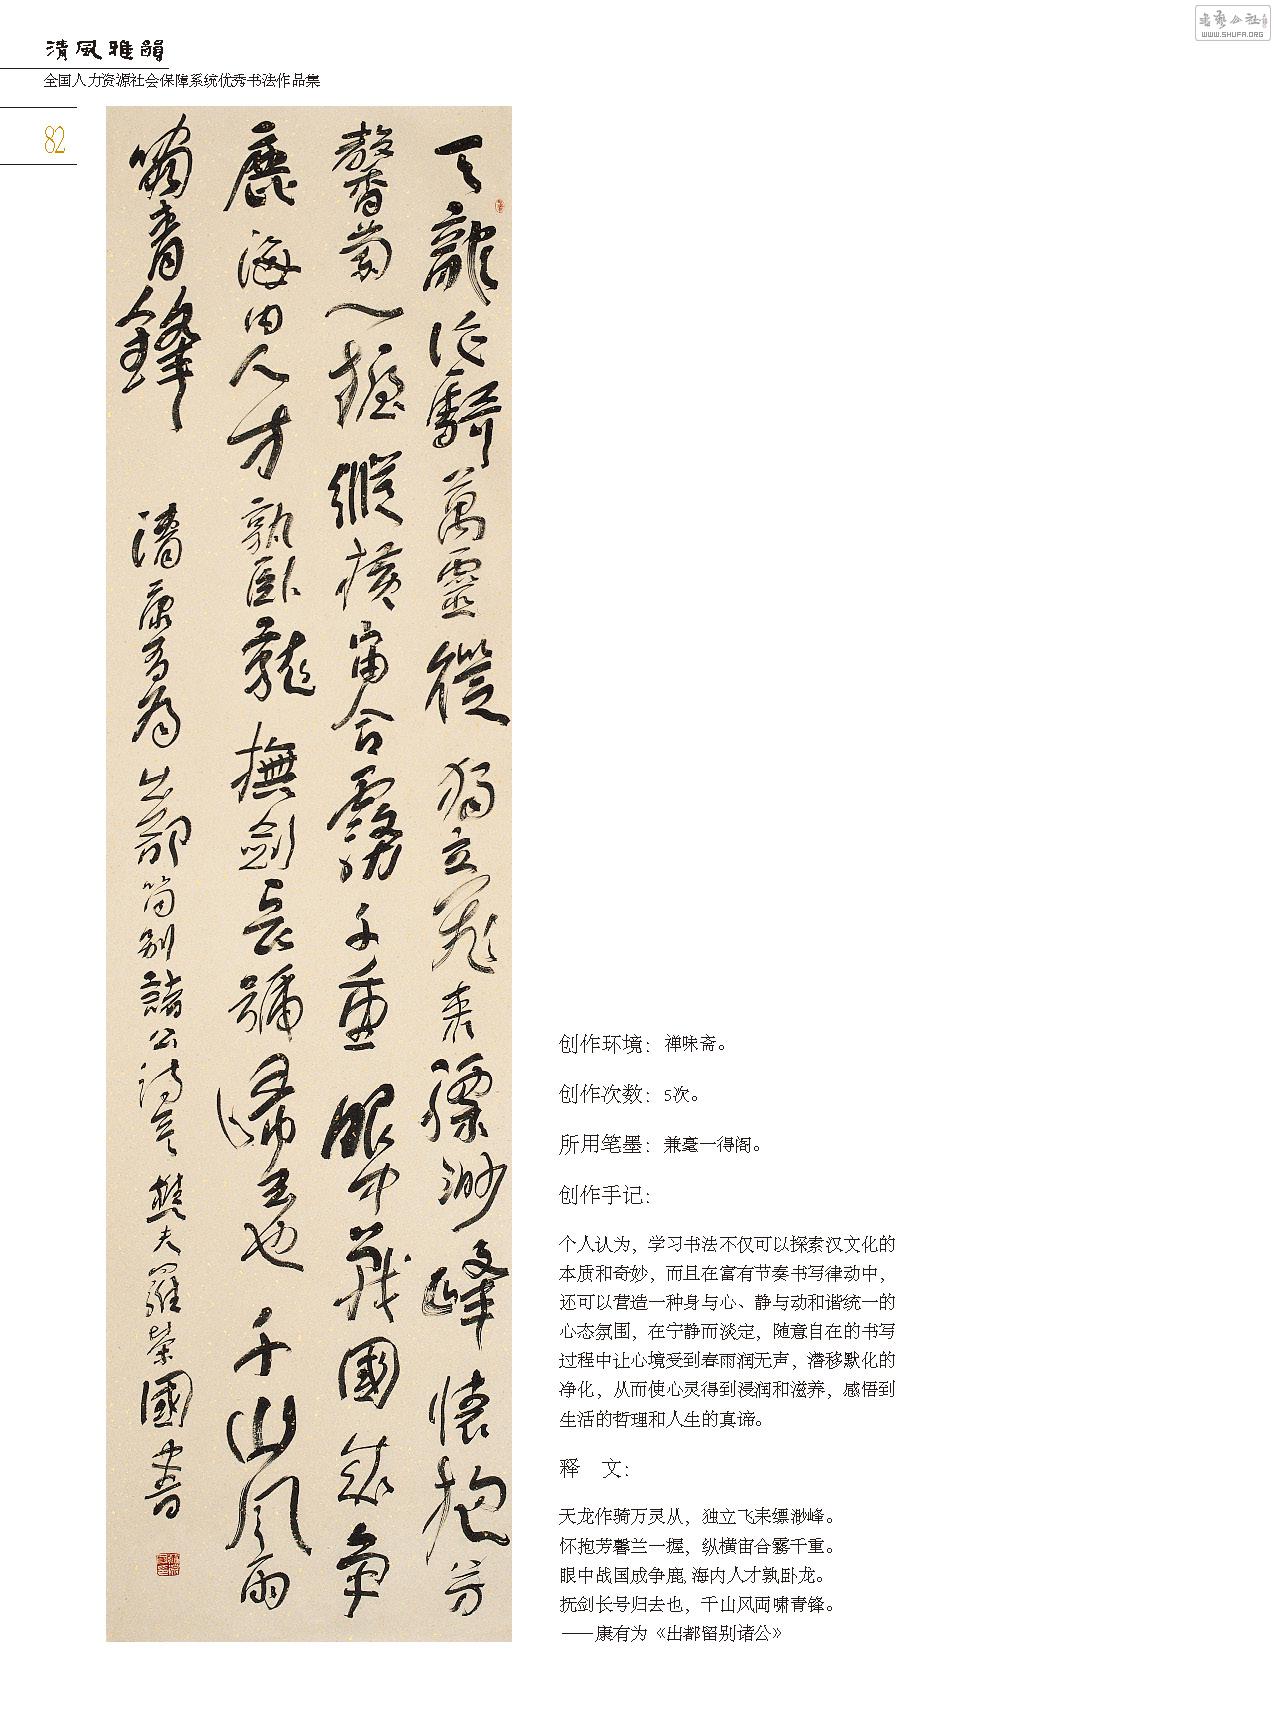 清風雅韻
全国人力资源社会保障系统优秀书法作品集
82
WWW.SHUFA.ORG
天龍作騎萬靈從獨立飛來縹渺峰懷抱芳
馨蘭一握縱橫宙合霧千重眼中戰國成爭
鹿海內人才孰臥龍撫劍長號歸去也千山風雨
嘯青鋒
清康有為出都留別諸公詩意樊夫羅榮國書
创作环境：禅味斋。
创作次数：5次。
所用笔墨：兼毫一得阁。
创作手记：
个人认为，学习书法不仅可以探索汉文化的
本质和奇妙，而且在富有节奏书写律动中，
还可以营造一种身与心、静与动和谐统一的
心态氛围，在宁静而淡定，随意自在的书写
过程中让心境受到春雨润无声，潜移默化的
净化，从而使心灵得到浸润和滋养，感悟到
生活的哲理和人生的真谛。
释　文：
天龙作骑万灵从，独立飞来缥渺峰。
怀抱芳馨兰一握，纵横宙合雾千重。
眼中战国成争鹿,海内人才孰卧龙。
抚剑长号归去也，千山风雨啸青锋。
——康有为《出都留别诸公》